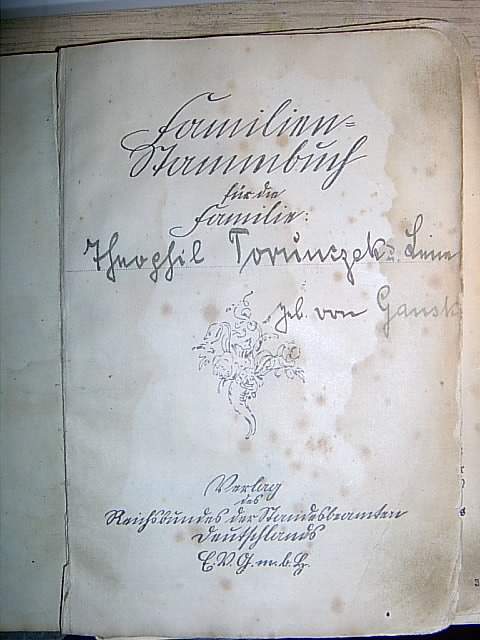 Familien=
Stammbuch
für die
Familie:
Theophil Torunczek u. Lene
geb. von Gansk
Verlag
des
Reichsbundes der Standesbeamten
Deutschlands
E.V.G.m.b.H.